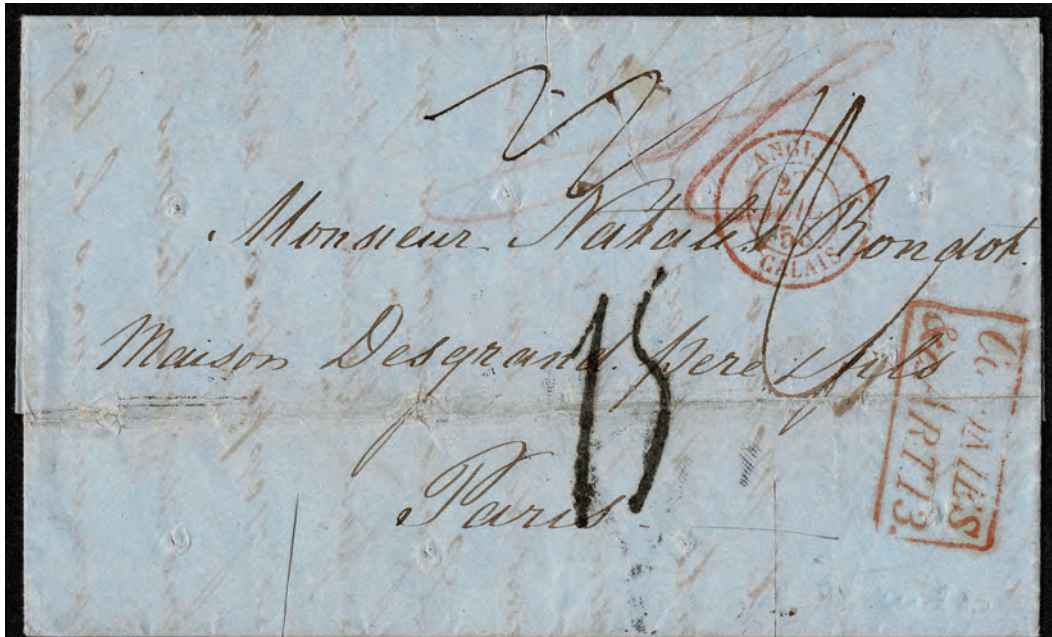 ANGL.
27
JUIL
CALAIS
Monsieur Natalis Rondot.
Maison Desgrand père & fils
Paris
15
&c. ART. 13.